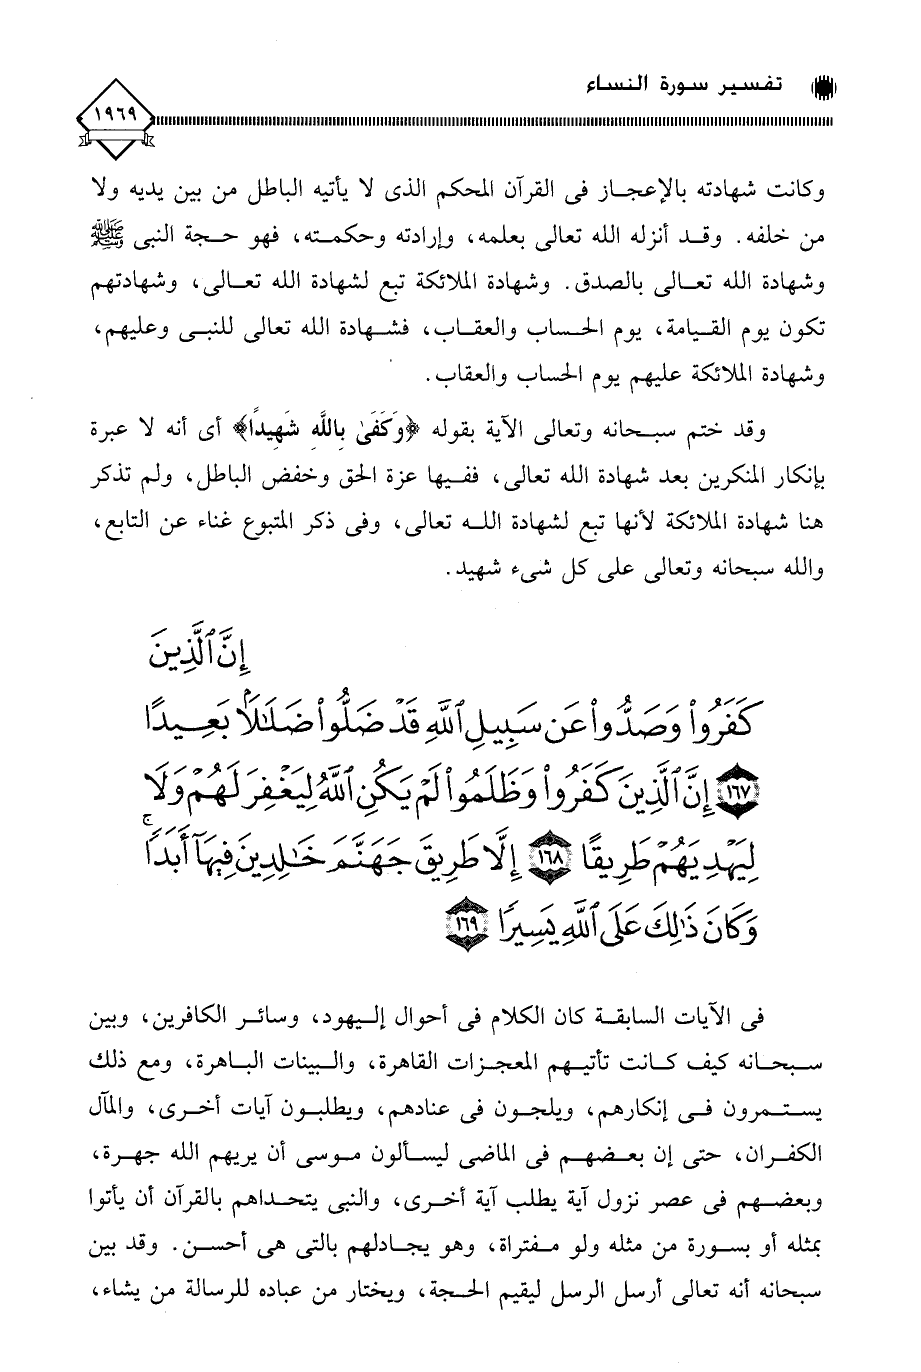 تفسير سورة النساء
١٩٦٩
وكانت شهادته بالإعجاز فى القرآن المحكم الذى لا يأتيه الباطل من بين يديه ولا
من خلفه. وقد أنزله الله تعالى بعلمه، وإرادته وحكمته، فهو حجة النبى ﷺ
وشهادة الله تعالى بالصدق. وشهادة الملائكة تبع لشهادة الله تعالى، وشهادتهم
تكون يوم القيامة، يوم الحساب والعقاب، فشهادة الله تعالى للنبى وعليهم،
وشهادة الملائكة عليهم يوم الحساب والعقاب.
وقد ختم سبحانه وتعالى الآية بقوله ﴿وَكَفَىٰ بِاللَّهِ شَهِيدًا﴾ أى أنه لا عبرة
بإنكار المنكرين بعد شهادة الله تعالى، ففيها عزة الحق وخفض الباطل، ولم تذكر
هنا شهادة الملائكة لأنها تبع لشهادة الله تعالى، وفى ذكر المتبوع غناء عن التابع،
والله سبحانه وتعالى على كل شىء شهيد.
إِنَّ ٱلَّذِينَ
كَفَرُوا۟ وَصَدُّوا۟ عَن سَبِيلِ ٱللَّهِ قَدْ ضَلُّوا۟ ضَلَـٰلًۢا بَعِيدًا
١٦٧ إِنَّ ٱلَّذِينَ كَفَرُوا۟ وَظَلَمُوا۟ لَمْ يَكُنِ ٱللَّهُ لِيَغْفِرَ لَهُمْ وَلَا
لِيَهْدِيَهُمْ طَرِيقًا ١٦٨ إِلَّا طَرِيقَ جَهَنَّمَ خَـٰلِدِينَ فِيهَآ أَبَدًا ۚ
وَكَانَ ذَٰلِكَ عَلَى ٱللَّهِ يَسِيرًا ١٦٩
فى الآيات السابقة كان الكلام فى أحوال إليهود، وسائر الكافرين، وبين
سبحانه كيف كانت تأتيهم المعجزات القاهرة، والبينات الباهرة، ومع ذلك
يستمرون فى إنكارهم، ويلجون فى عنادهم، ويطلبون آيات أخرى، والمآل
الكفران، حتى إن بعضهم فى الماضى ليسألون موسى أن يريهم الله جهرة،
وبعضهم فى عصر نزول آية يطلب آية أخرى، والنبى يتحداهم بالقرآن أن يأتوا
بمثله أو بسورة من مثله ولو مفتراة، وهو يجادلهم بالتى هى أحسن. وقد بين
سبحانه أنه تعالى أرسل الرسل ليقيم الحجة، ويختار من عباده للرسالة من يشاء،